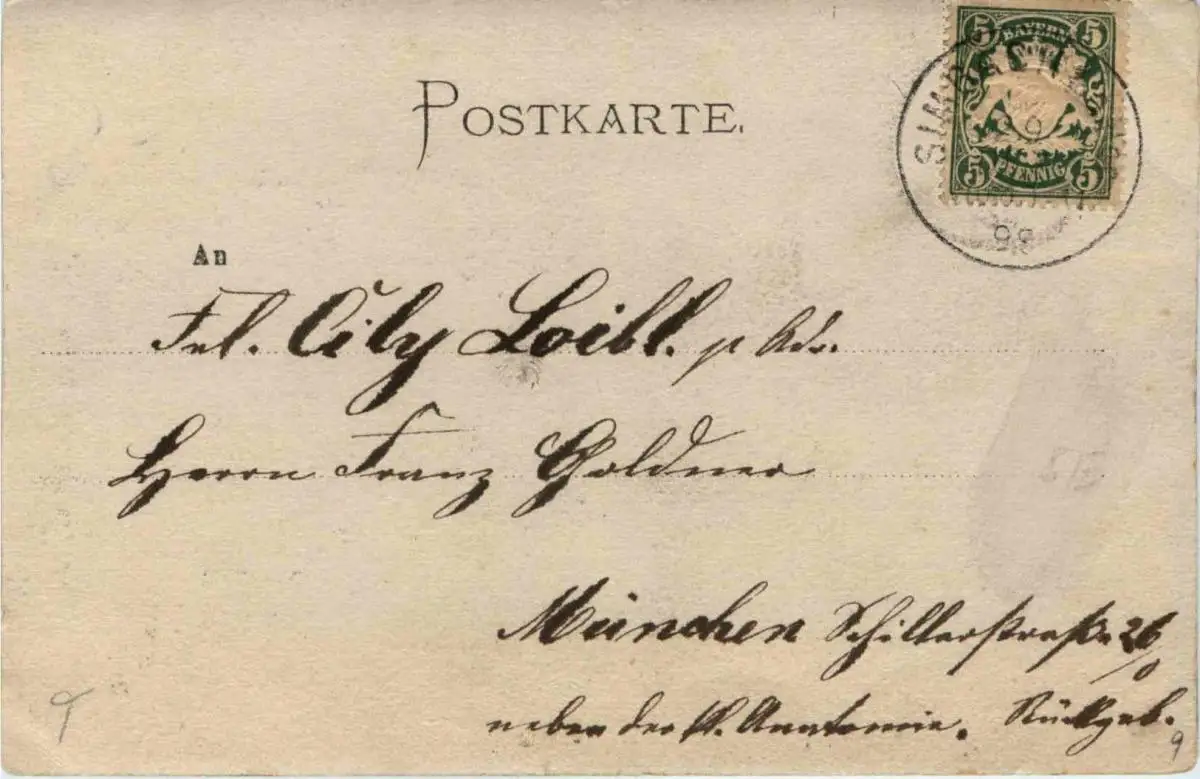 POSTKARTE.
5 BAYERN 5
5 PFENNIG 5
SIMBACH
98
An
Frl. Cily Loibl. p Adr.
Herrn Franz Goldner
München Schillerstraße 26/0
neben der Anatomie. Rückgeb.
9